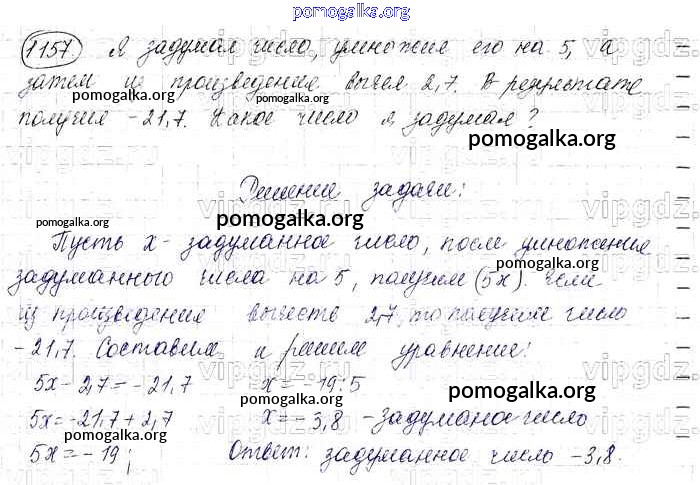 pomogalka.org
1157. Я задумал число, умножил его на 5, а
затем из произведения вычел 2,7. В результате
pomogalka.org pomogalka.org
получил -21,7. Какое число я задумал?
pomogalka.org
Решение задачи:
pomogalka.org
pomogalka.org
Пусть x - задуманное число, после умножения
pomogalka.org
задуманного числа на 5, получим (5x). Если
из произведения вычесть 2,7, то получим число
pomogalka.org
-21,7. Составим и решим уравнение:
5x - 2,7 = -21,7 x = -19:5
pomogalka.org
5x = -21,7 + 2,7 x = -3,8 - задумано число
pomogalka.org
5x = -19; Ответ: задуманное число -3,8.
pomogalka.org